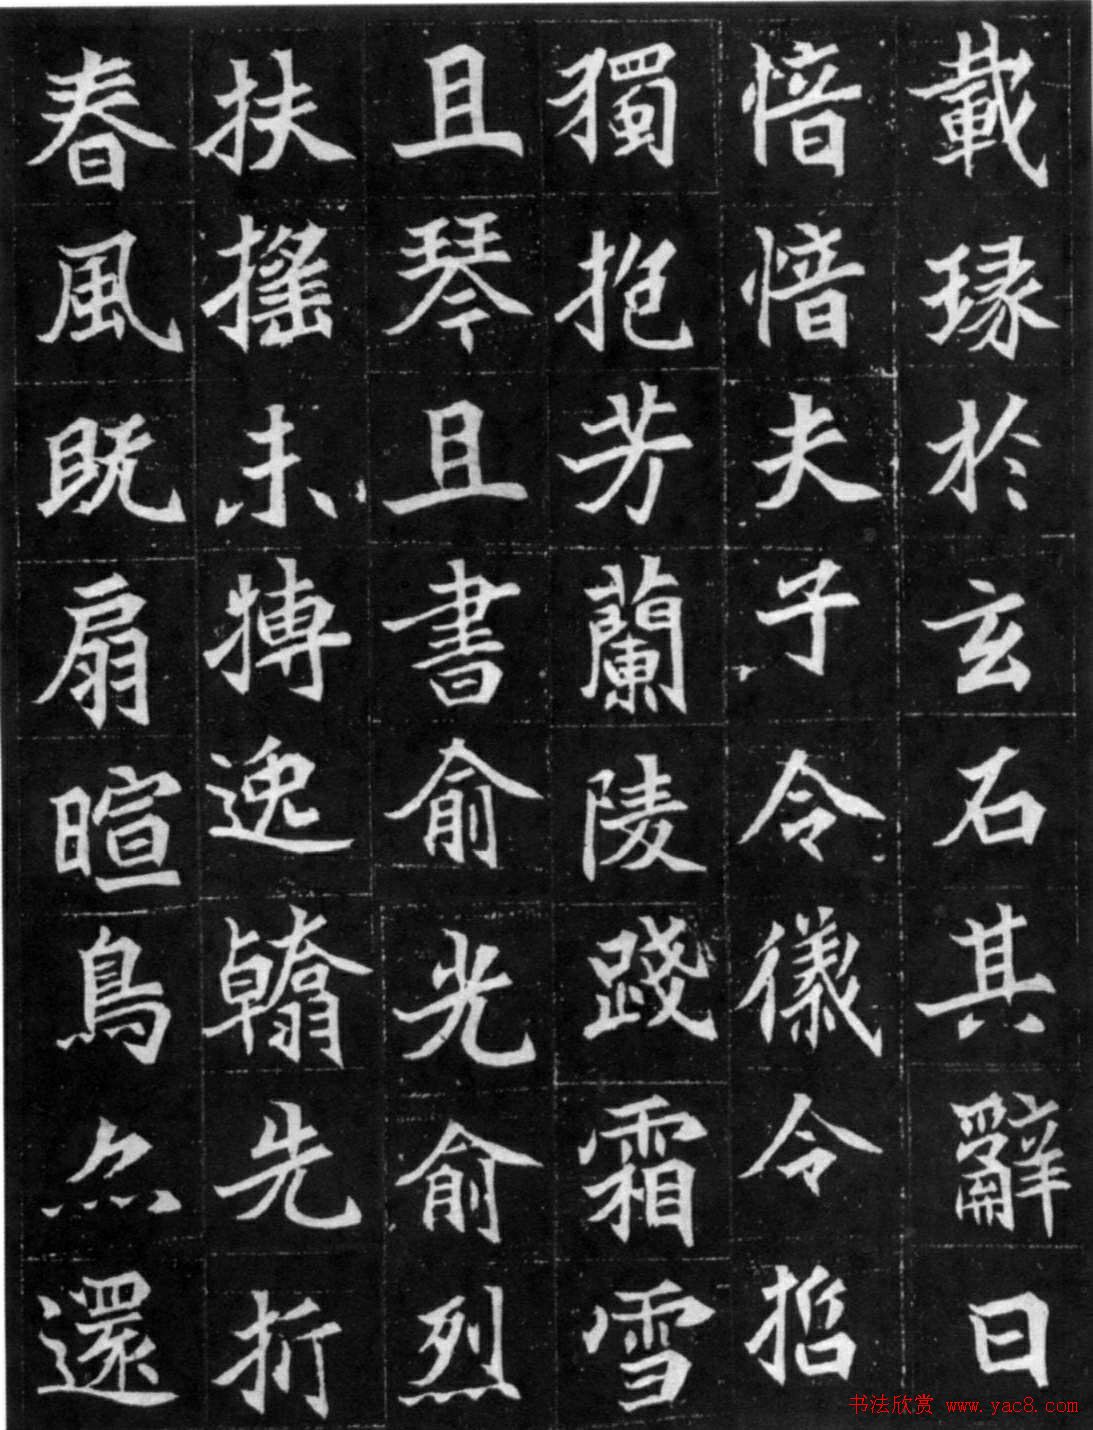 載瑑於玄石其辭曰
愔愔夫子令儀令哲
獨抱芳蘭陵踐霜雪
且琴且書俞光俞烈
扶搖未搏逸翰先折
春風既扇暄鳥亦還
书法欣赏 www.yac8.com